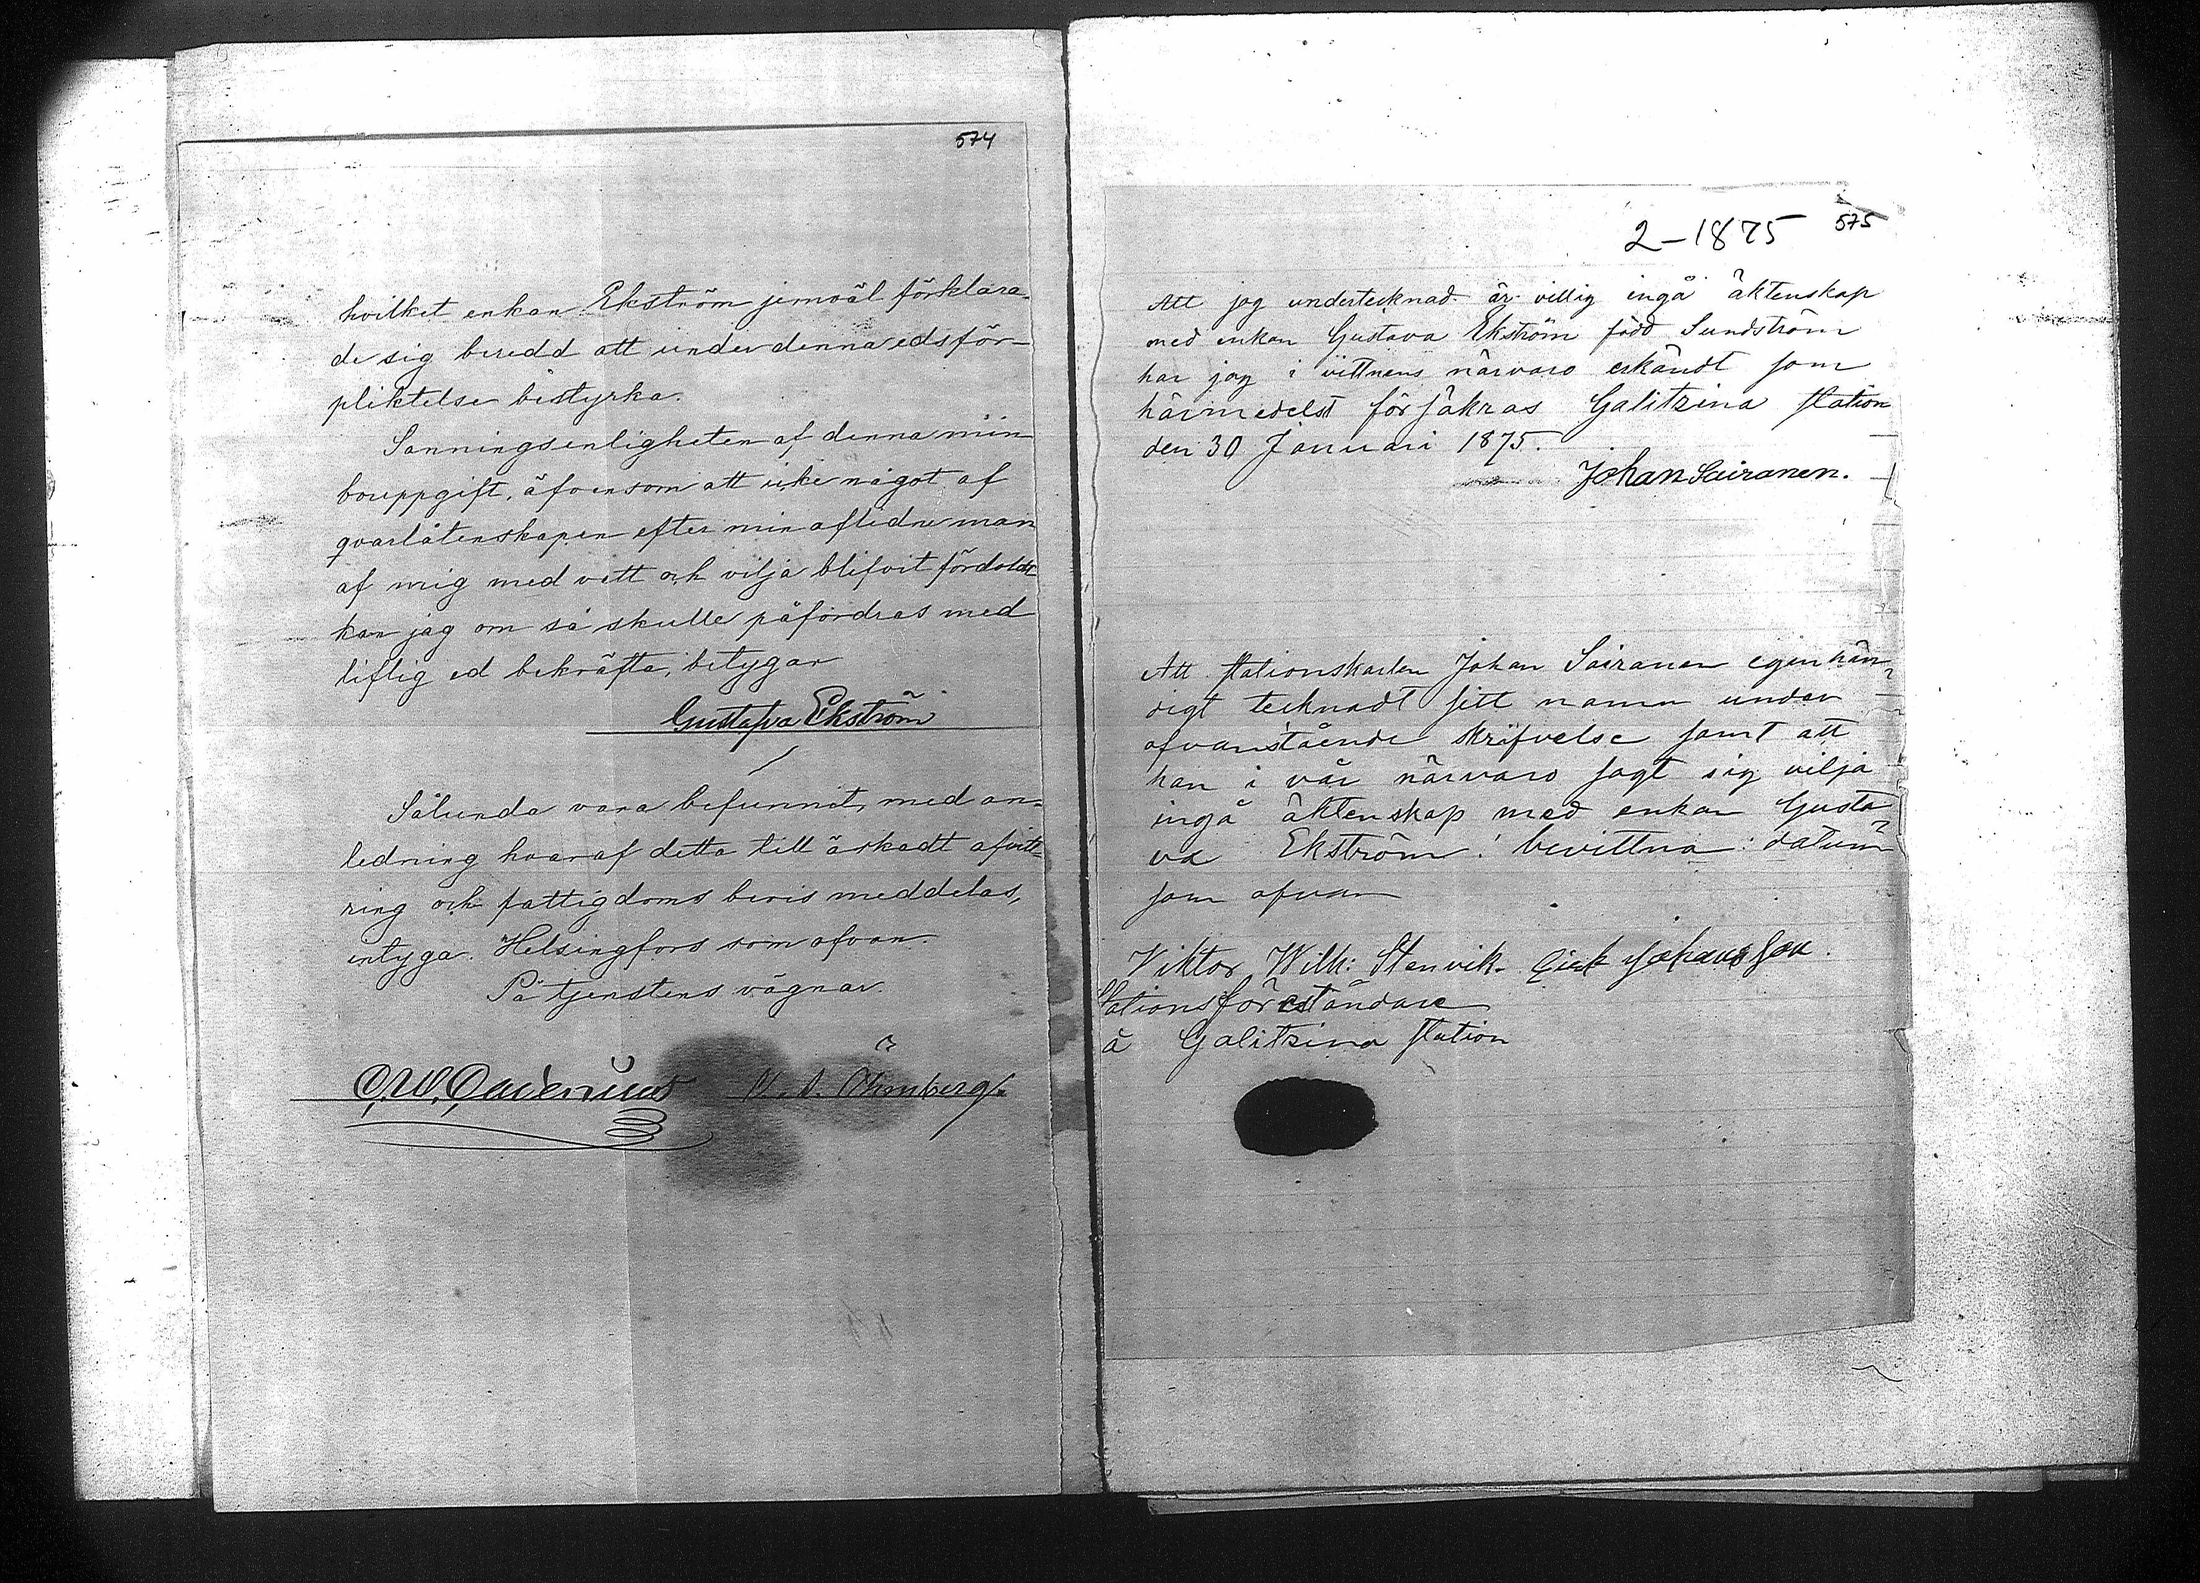 574
hvilket enkan Ekström jemväl förklara-
de sig beredd att under denna edsför-
pliktelse bestyrka.
Sanningsenligheten af denna min
bouppgift, äfvensom att icke något af
qvarlåtenskapen efter min aflidne man
af mig med vett och vilja blifvit fördoldt
kan jag om så skulle påfordras med
liflig ed bekräfta, betygar
Gustafva Ekström
Sålunda vara befunnit, med an-
ledning hvaraf detta till äskadt afvitt-
ring och fattigdoms bevis meddelas,
intyga. Helsingfors som ofvan.
På tjenstens vägnar.
Öhmberg.
2-1875 575
Att jag undertecknad är villig ingå äktenskap
med enkan Gustava Ekström född Sundström
har jag i vittnens närvaro erkändt som
härmedelst försäkras Galitzina station
den 30 Januari 1875.
Johan Sairanen.
Att stationskarlen Johan Sairanen egenhän-
digt tecknadt sitt namn under
ofvanstående skrifvelse samt att
han i vår närvaro sagt sig vilja
ingå äktenskap med enkan Gusta
va Ekström! bevittna: datum
som ofvan
Viktor Wilh: Stenvik. Erik Johansson.
Stationsföreståndare
å Galitzina station